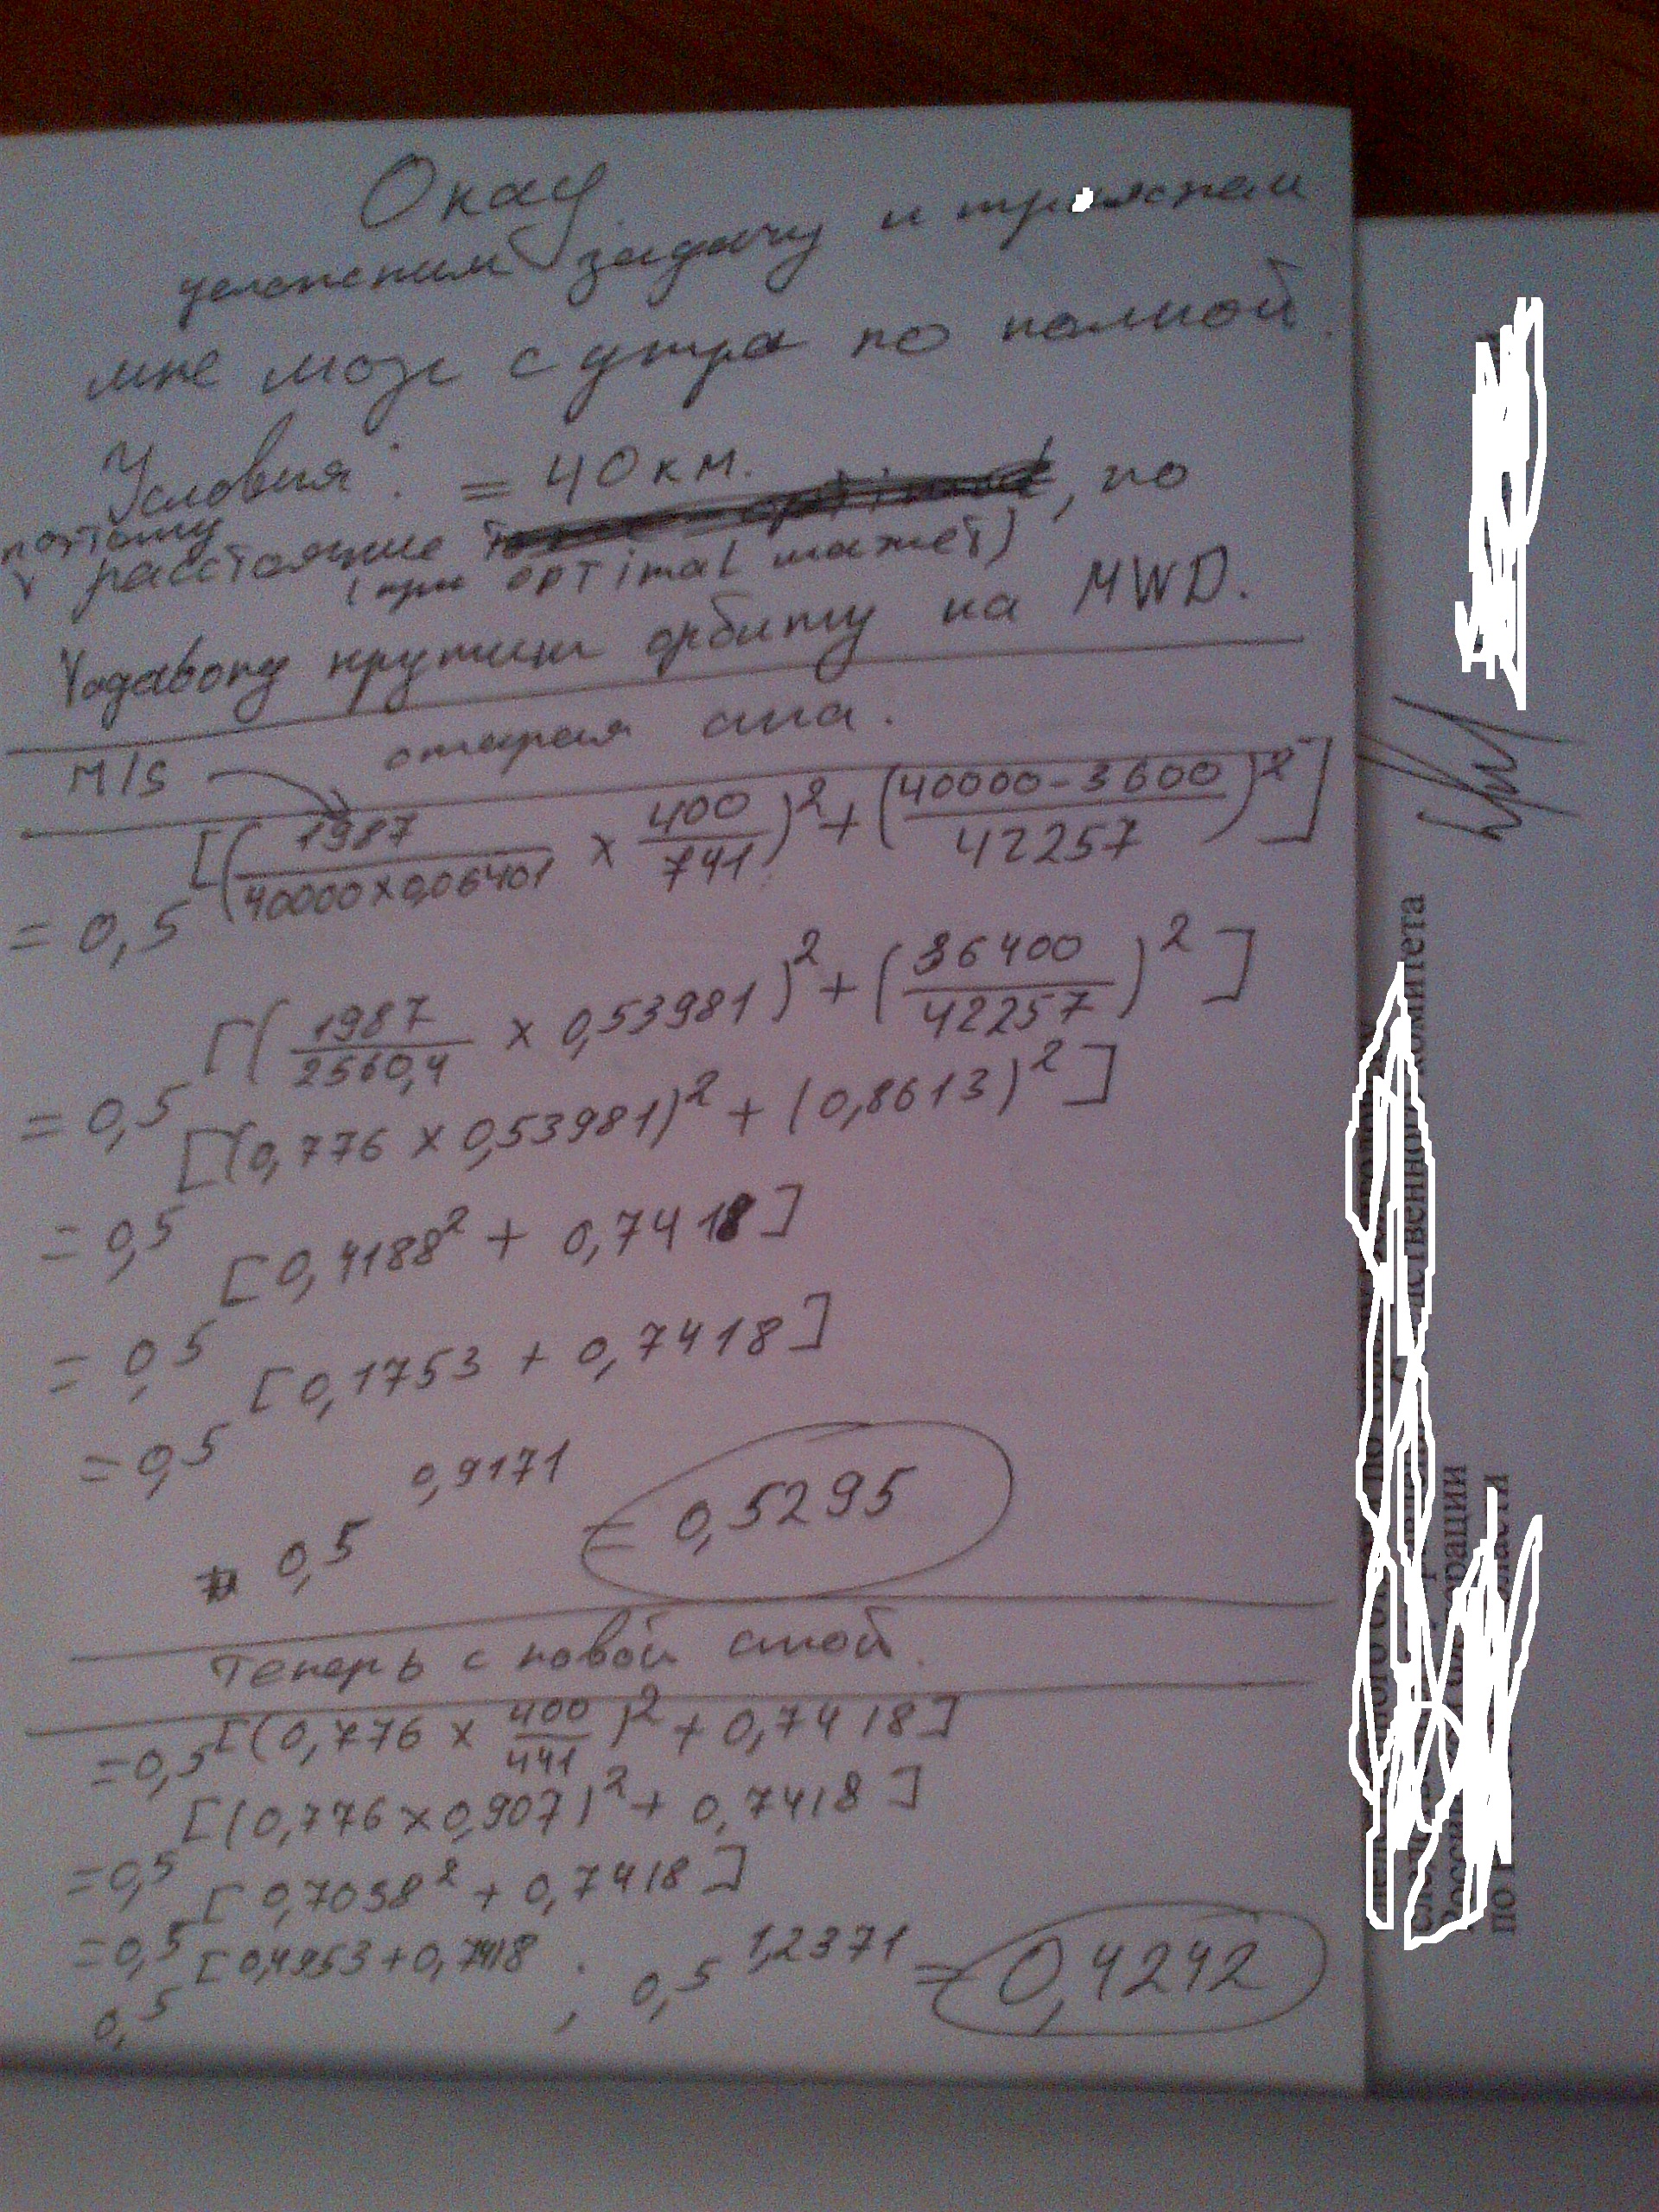 Окау
усложним задачу и трахнем
мне мозг с утра по полной.
Условия: = 40 км.
поэтому
расстояние, но
(при optimal мажет)
Vagabong крутим орбиту на MWD.
старая сига.
M/S
= 0,5 [(1987/40000×0,06401 × 400/741)²+(40000-3600/42257)²]
= 0,5 [(1987/2560,4 × 0,53981)²+(36400/42257)²]
= 0,5 [(0,776 × 0,53981)² + (0,8613)²]
= 0,5 [0,4188² + 0,7418]
= 0,5 [0,1753 + 0,7418]
= 0,5 0,9171 = 0,5295
Теперь с новой сигой.
=0,5 [(0,776 × 400/441)² + 0,7418]
=0,5 [(0,776×0,907)² + 0,7418]
=0,5 [0,7038² + 0,7418]
0,5 [0,4953+0,7418 ; 0,5 1,2371 = 0,4242
комитета